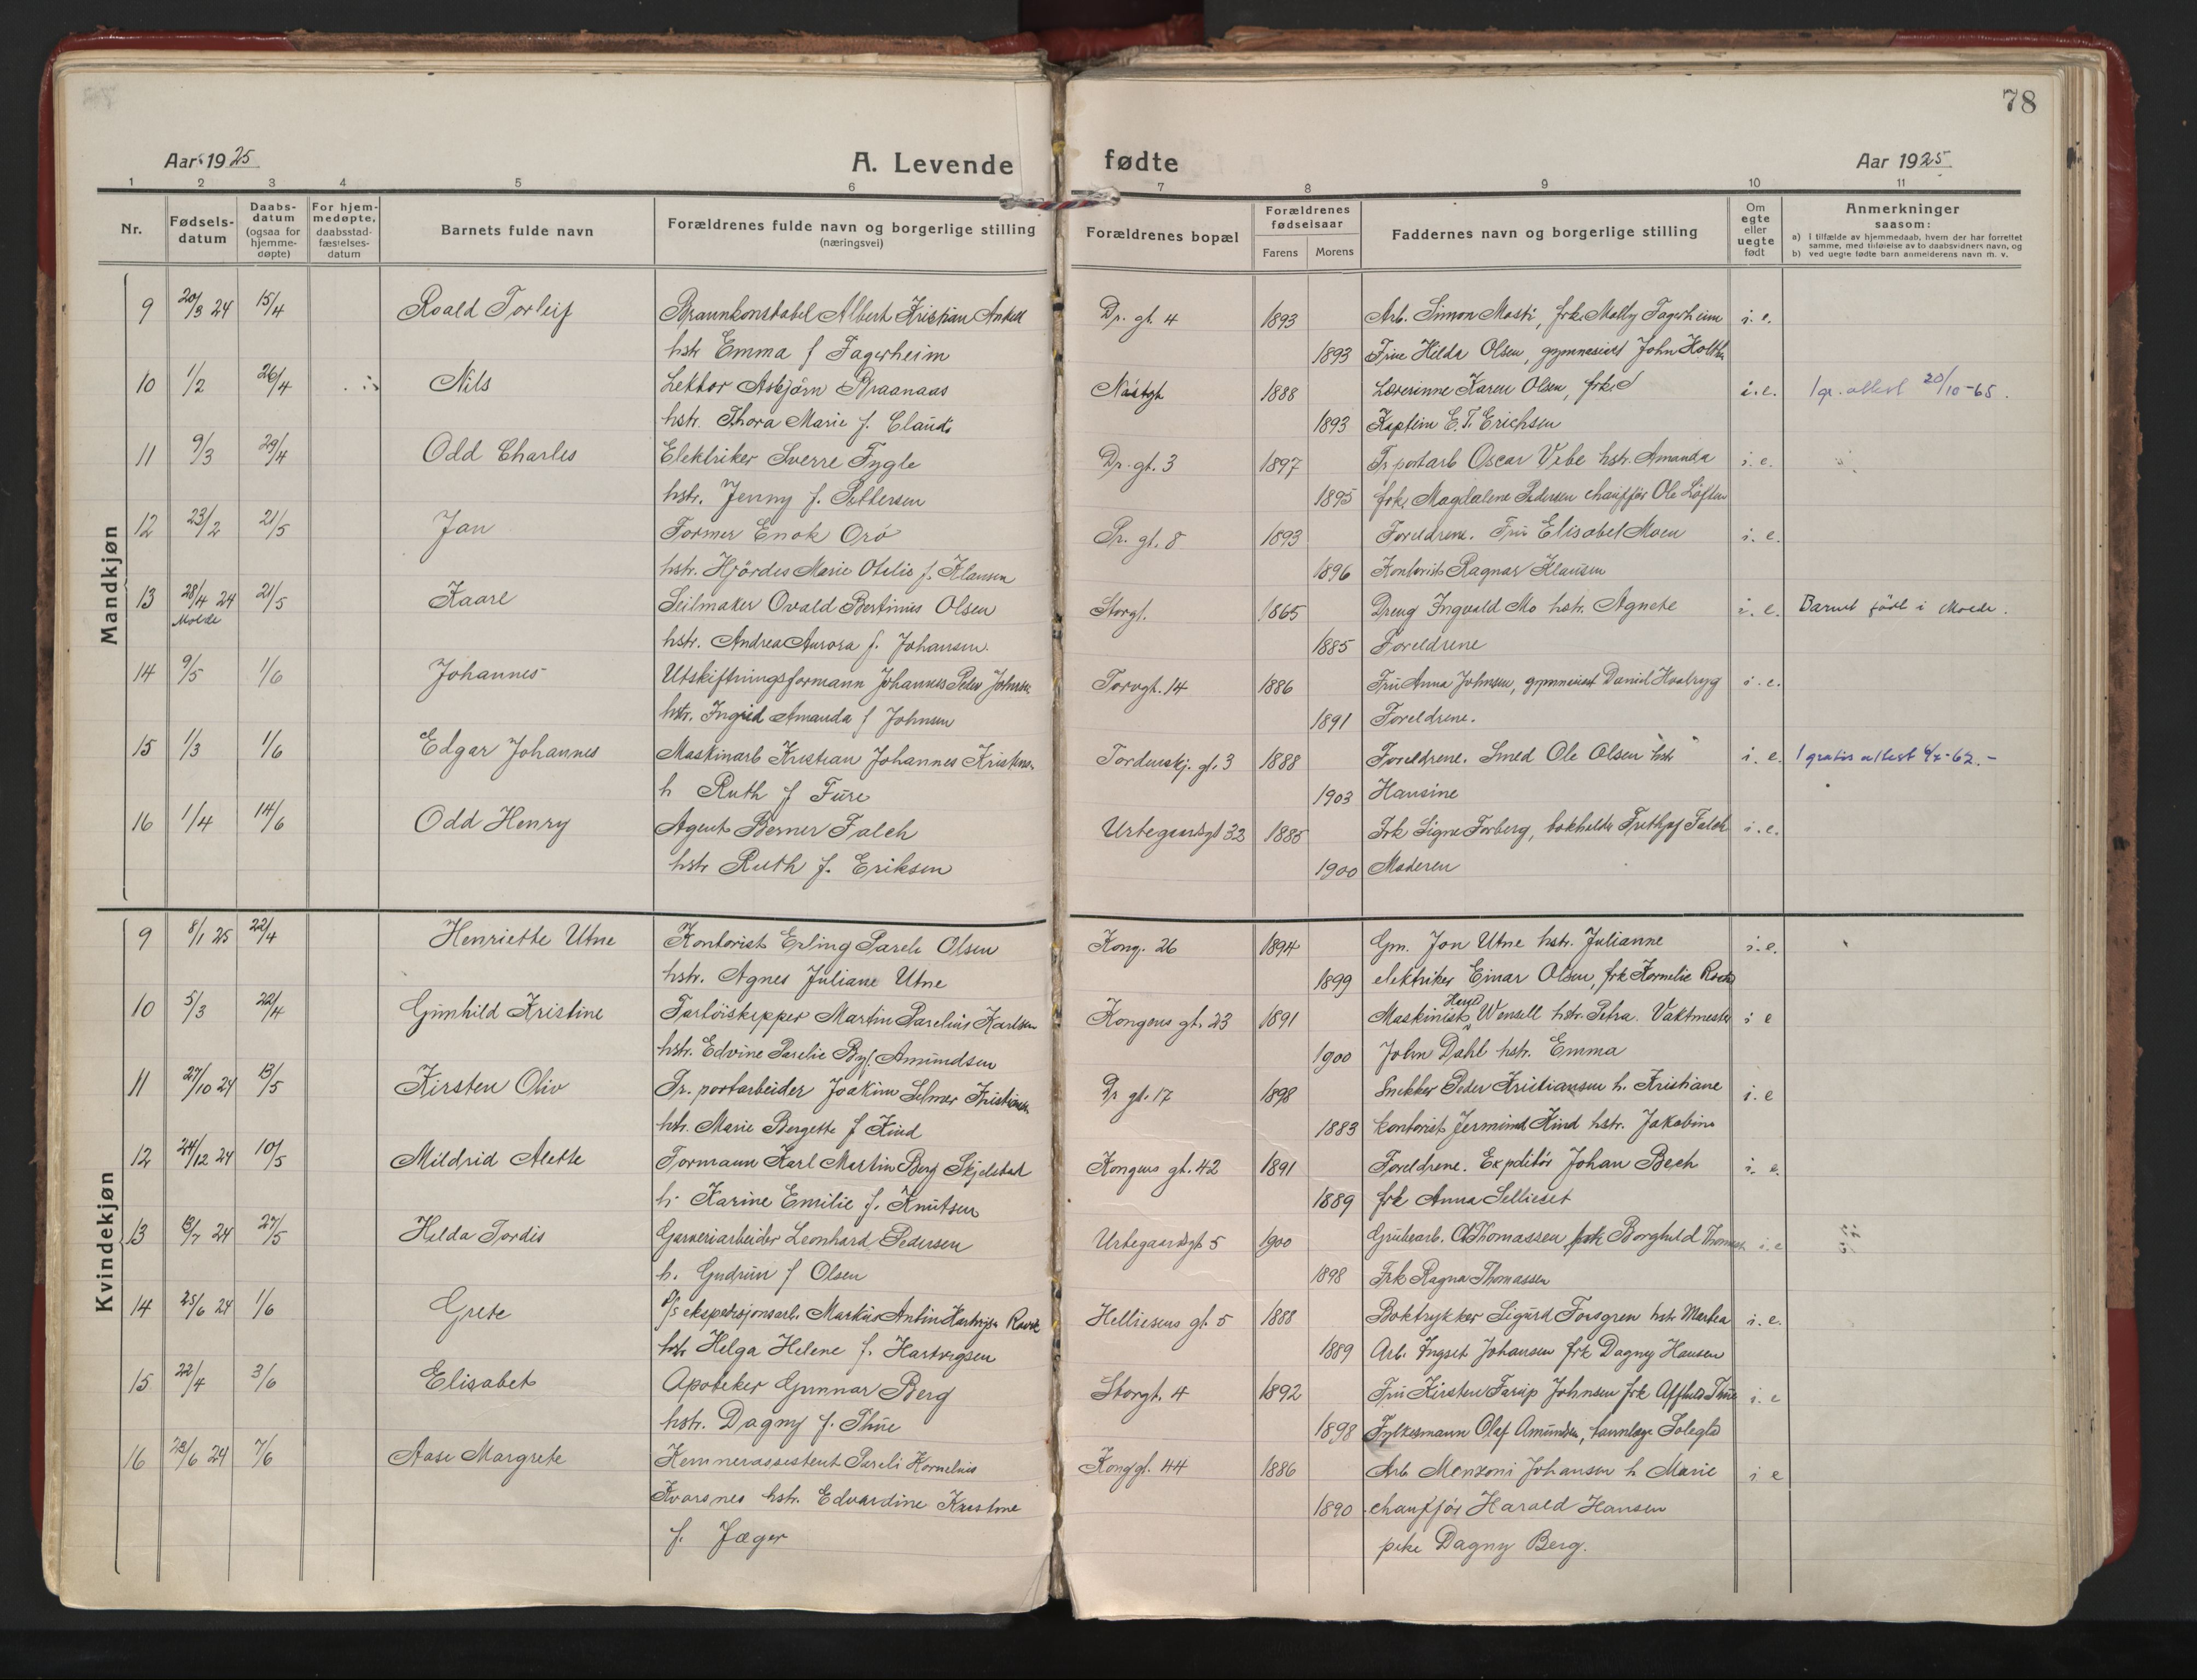 78
Aar 1925
A. Levende fødte
Aar 1925
1 2 3 4 5 6 7 8 9 10 11
Nr.
Fødsels-datum
Daabs-datum (ogsaa for hjemme-døpte)
For hjem-medøpte, daabsstad-fæstelses-datum
Barnets fulde navn
Forældrenes fulde navn og borgerlige stilling (næringsvei)
Forældrenes bopæl
Forældrenes fødselsaar
Farens Morens
Faddernes navn og borgerlige stilling
Om egte eller uegte født
Anmerkninger saasom:
a) i tilfælde av hjemmedaab, hvem der har forrettet samme, med tilføielse av to daabsvidners navn, og
b) ved uegte fødte barn anmelderens navn m. v.
Mandkjøn
9 20/3 24 15/4 Roald Torleif Albert Kristian Dr. gt. 4 1893 Arb. Simon Mosti, frk. Molly Fagerheim i. e.
hstr Emma f Fagerheim 1893 Frue Hilda Olsen, gymnasiast John
10 1/2 26/4 Nils Lektor Asbjørn Braanaas 1888 Lærerinne Karen Olsen, frk. i. e. 1 gr. attest 20/10-65.
hstr. Thora Marie f. 1893 Kaptein E. T. Erichsen
11 9/3 29/4 Odd Charles Elektriker Sverre Fygle Dr. gt. 3 1897 Tr. portarb Oscar Vebe hstr. Amanda i. e.
hstr. Jenny f. Pettersen 1895 frk. Magdalene Pedersen chauffør Ole
12 23/2 21/5 Jan Former Enok Orø Pr. gt. 8 1893 Foreldrene. Fru Elisabet Moen i. e.
hstr. Hjördis Marie Otelie f. Klausen 1896 Kontorist Ragnar Klausen
13 28/4 24 21/5 Kaare Seilmaker Ovald Bertinius Olsen Storgt. 1865 Dreng Ingvald Mo hstr. Agnete i. e. Barnet født i Molde.
Molde hstr. Andrea Aurora f. Johansen. 1885 Foreldrene
14 9/5 1/6 Johannes Utskiftningsformann Johannes Peder Johnsen Torvgt. 14 1886 Fru Anna Johnsen, gymnasiast Daniel i. e.
hstr. Ingrid Amanda f Johnsen 1891 Foreldrene.
15 1/3 1/6 Edgar Johannes Maskinarb Kristian Johannes Tordenskj. gt. 3 1888 Foreldrene. Smed Ole Olsen hstr i. e. 1 gratis attest 4/7-62.-
h Ruth f Fure 1903 Hansine
16 1/4 14/6 Odd Henry Agent Berner Falch Urtegaardsgt 33 1885 Frk Signe Forberg, bokholder Frithjof Falch i. e.
hstr Ruth f. Eriksen 1900 Moderen
Kvindekjøn
9 8/1 25 22/4 Henriette Utne Kontorist Erling Pareli Olsen Kong. 26 1894 Gm. Jon Utne hstr. Julianne i. e.
hstr. Agnes Juliane Utne 1899 elektriker Einar Olsen, frk Kornelie
10 5/3 22/4 Gunhild Kristine Martin Parelius Karlsen Kongens gt. 23 1891 Maskinist Wensell hstr. Petra. Vaktmester i e
hstr. Edvine Parelie By f. Amundsen 1900 John Dahl hstr. Emma
11 27/10 24 13/5 Kirsten Oliv Tr. portarbeider Joakim Selmer Kristiansen Dr gt. 17 1898 Snekker Peder Kristiansen h. Kristiane i. e
hstr. Marie Bergette f Kind 1883 kontorist Jermund Kind hstr. Jakobine
12 24/12 24 10/5 Mildrid Alette Formann Karl Martin Berg Skjelstad Kongens gt. 42 1891 Foreldrene. Expditör Johan Bech i. e.
h. Karine Emilie f. Knutsen 1889 frk Anna
13 13/7 24 27/5 Hilda Tordis Garveriarbeider Leonhard Pedersen Urtegaardsgt 5 1900 Grubearb. Thomassen frk Borghild i. e
h. Gudrun f Olsen 1898 Frk Ragna Thomassen
14 25/6 24 1/6 Grete D/S ekspedisjonsarb. Markus Antin Helliesens gt. 5 1888 Boktrykker Sigurd Forsgren hstr Martea i. e.
hstr Helga Helene f. Hartvigsen 1889 Arb. Johansen frk Dagny Hansen
15 22/4 3/6 Elisabet Apoteker Gunnar Berg Storgt. 4 1892 Fru Kirsten Johnsen frk i. e
hstr. Dagny f. Thue 1898 Fylkesmann Olaf Amundsen,
16 23/6 24 7/6 Aase Margrete Kemnerassistent Pareli Kornelius Konggt. 44 1886 Arb Monzoni Johansen h Marie i e
Kvarsnes hstr. Edvardine Kristine 1890 chauffør Harald Hansen
f. Jæger pike Dagny Berg.